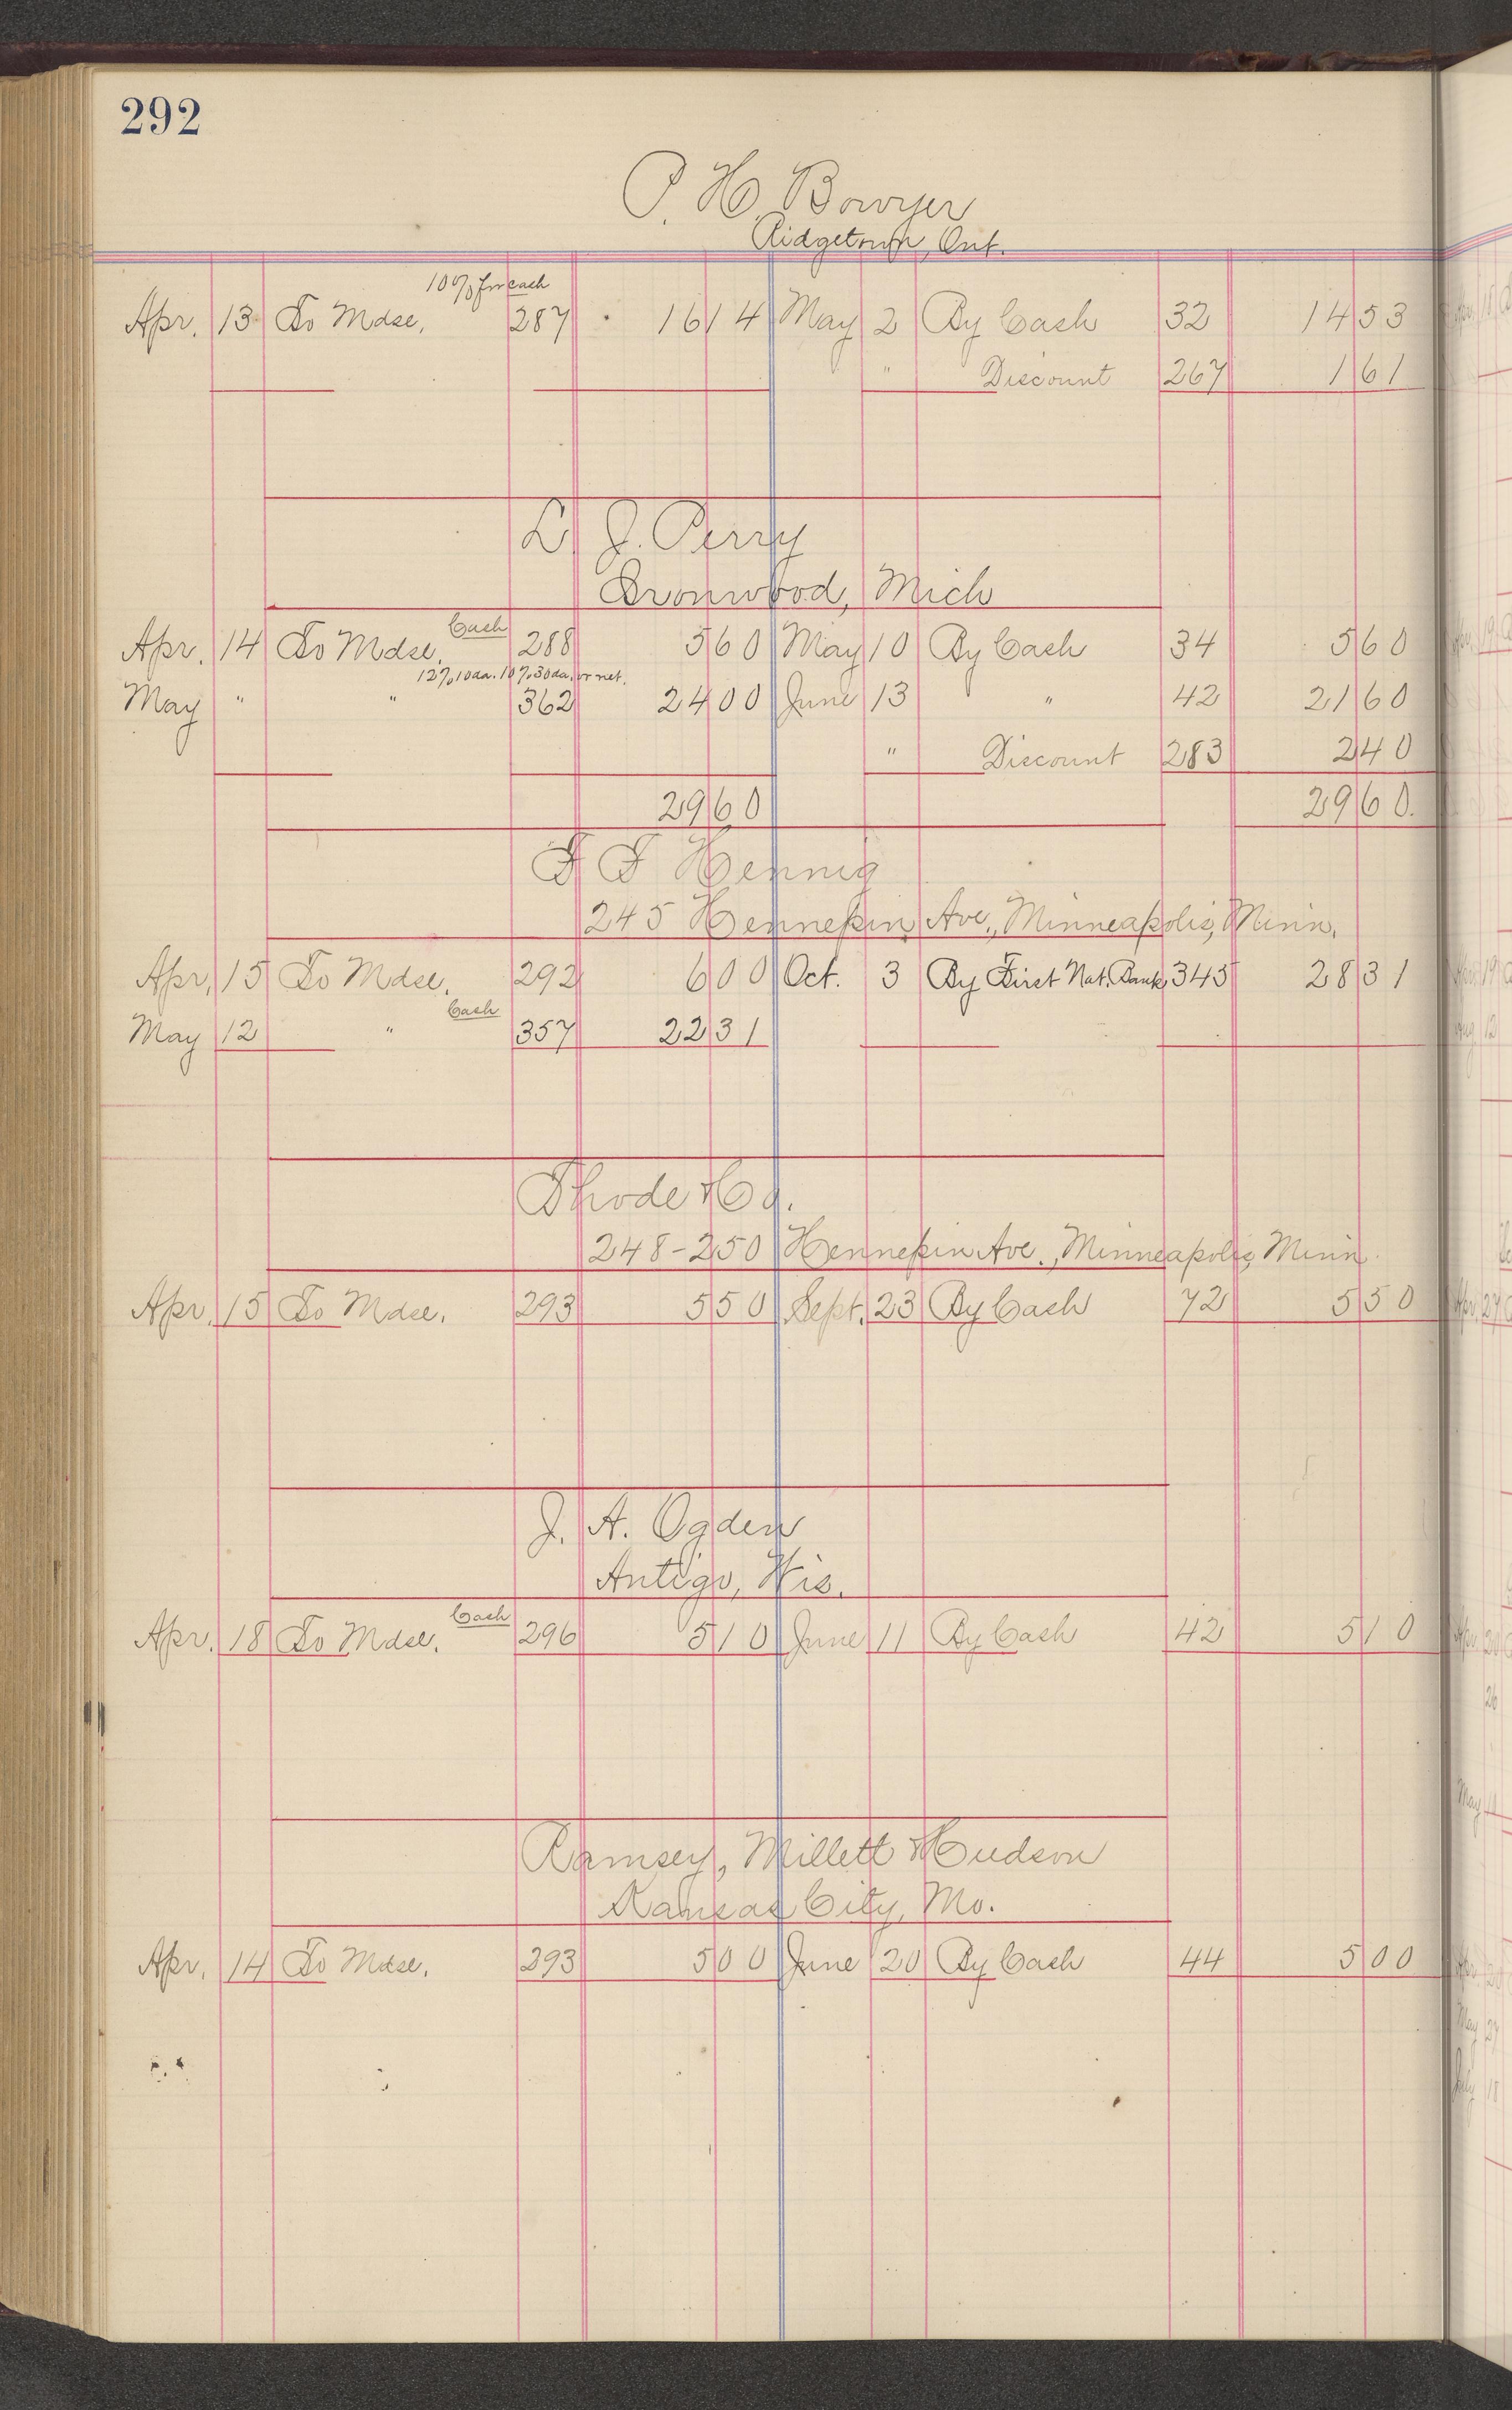 292
P. H. Bowyer
Ridgetown, Ont.
10% for cash
Apr. 13 To Mdse. 287 16 14 May 2 By Cash 32 14 53
" Discount 267 1 61
L. J. Perry
Ironwood, Mich
Cash
Apr. 14 To Mdse. 288 5 60 May 10 By Cash 34 5 60
12% 10 da. 10% 30 da. or net.
May " " 362 24 00 June 13 " 42 21 60
" Discount 283 2 40
29 60 29 60.
F F Hennig
245 Hennepin Ave., Minneapolis, Minn.
Apr. 15 To Mdse. 292 6 00 Oct. 3 By First Nat. Bank 345 28 31
Cash
May 12 " 357 22 31
Thode & Co.
248-250 Hennepin Ave., Minneapolis, Minn.
Apr. 15 To Mdse. 293 5 50 Sept. 23 By Cash 72 5 50
J. A. Ogden
Antigo, Wis.
Cash
Apr. 18 To Mdse. 296 5 10 June 11 By Cash 42 5 10
Ramsey, Millett & Hudson
Kansas City, Mo.
Apr. 14 To Mdse. 293 5 00 June 20 By Cash 44 5 00